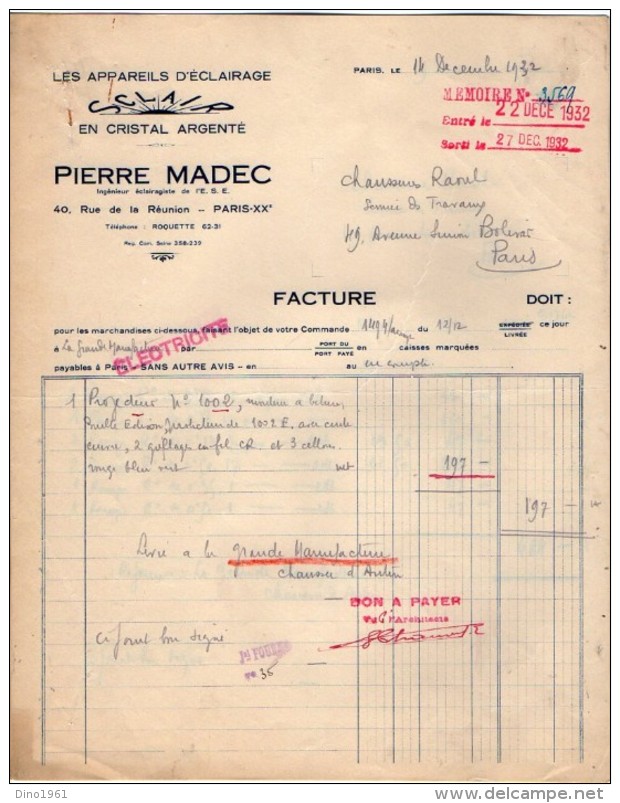 LES APPAREILS D'ÉCLAIRAGE
SCLAIR
EN CRISTAL ARGENTÉ
PIERRE MADEC
Ingénieur éclairagiste de l'E. S. E.
40, Rue de la Réunion — PARIS-XXe
Téléphone : ROQUETTE 62-31
Reg. Com. Seine 358-239
PARIS, LE 14 Decembre 1932
MEMOIRE N° 3569
Entré le 22 DECE 1932
Sorti le 27 DEC. 1932
Chaussures Raoul
Service des Travaux
49, Avenue Simon Bolivar
Paris
FACTURE DOIT :
pour les marchandises ci-dessous, faisant l'objet de votre Commande 1494 du 12/12 EXPÉDIÉE ce jour
LIVRÉE
à La Grande Manufacture par PORT DU en caisses marquées
PORT PAYÉ
ELECTRICITE
payables à Paris - SANS AUTRE AVIS - en au en compte
1 Projecteur N° 1002,
Douille Edison, de 1002 E. avec
cuivre, 2 en fil CR et 3
rouge bleu vert net 197 —
197 —
Livré a la grande Manufacture
chaussée d'Antin
BON A PAYER
Vu l'Architecte
ci joint bon signé
35
Dino1961
delcampe.net